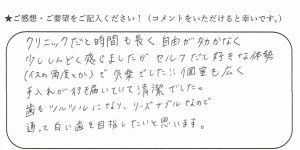 ★ご感想・ご要望をご記入ください！（コメントをいただけると幸いです。）
クリニックだと時間も長く自由が効かなく
少ししんどく感じましたが セルフだと好きな体勢
(イスの角度とか)で気楽でした!! 個室も広く
手入れが行き届いていて清潔でした。
歯もツルツルになり、リーズナブルなので
通って白い歯を目指したいと思います。